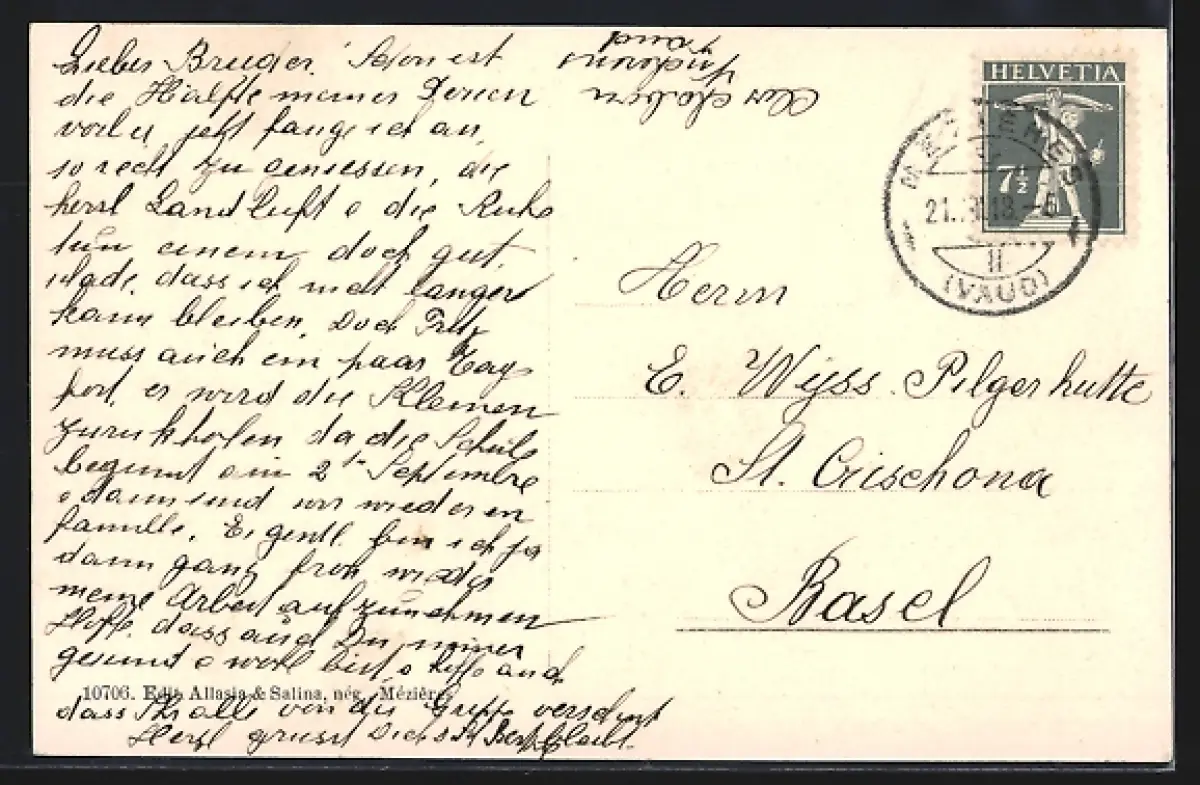 Lieber Bruder! Schon ist
die Hälfte meiner Ferien
vorbei, jetzt fange ich an,
so recht zu geniessen, die
herrl Landluft & die Ruhe
tun einem doch gut.
schade, dass ich nicht länger
kann bleiben. Doch Fritz
muss auch ein paar Tag
fort, er wird die Kleinen
zurükholen da die Schule
beginnt am 2t Septembre
& dann sind wir wieder en
famille. Eigentl. bin ich ja
dann ganz froh wieder
meine Arbeit aufzunehmen
Hoffe, dass auch Du immer
gesund & wohl bist, & hoffe auch
10706. Edit. Allasia & Salina, nég., Mézières
dass Ihr alle von der Grippe verschont
Herzl grüsst Dich bleibt.
HELVETIA
7½
MÉZIÈRES
21. 18.-6
II
(VAUD)
Herrn
E. Wyss. Pilgerhütte
St. Crischona
Basel